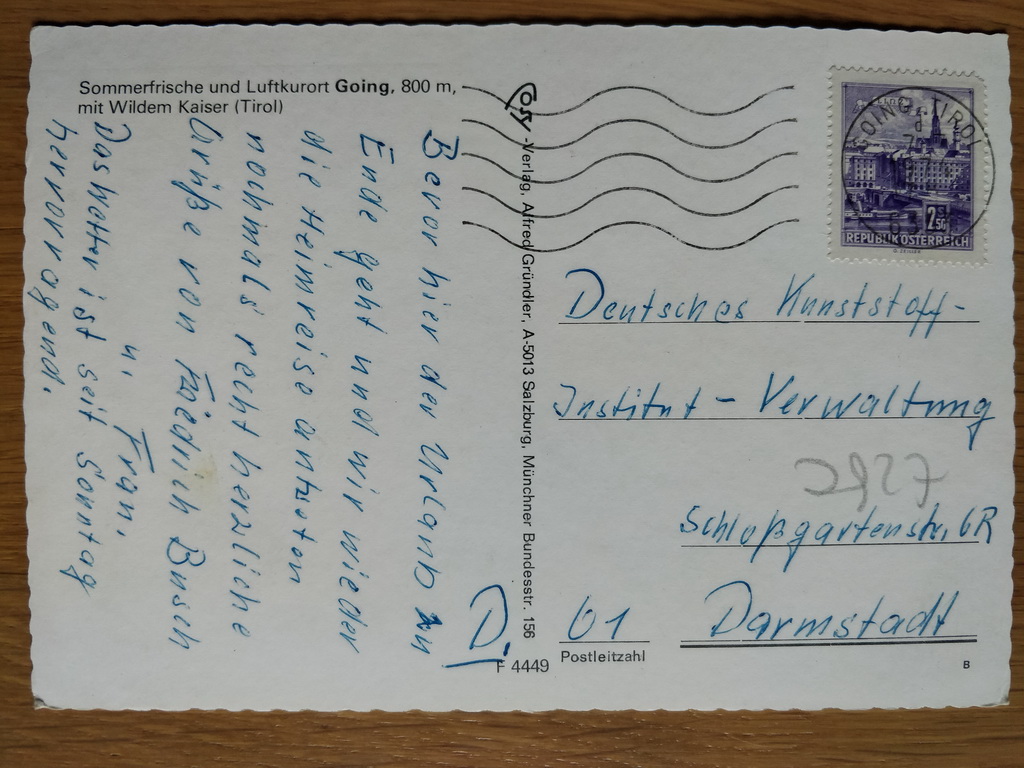 Sommerfrische und Luftkurort Going, 800 m,
mit Wildem Kaiser (Tirol)
Bevor hier der Urlaub zu
Ende geht und wir wieder
die Heimreise antreten
nochmals recht herzliche
Grüße von Friedrich Busch
u. Frau.
Das Wetter ist seit Sonntag
hervorragend.
-Verlag, Alfred Gründler, A-5013 Salzburg, Münchner Bundesstr. 156
F 4449
GOING, TIROL
2.50
REPUBLIK ÖSTERREICH
Deutsches Kunststoff-
Institut - Verwaltung
Schloßgartenstr. 6R
D
61 Darmstadt
Postleitzahl
B